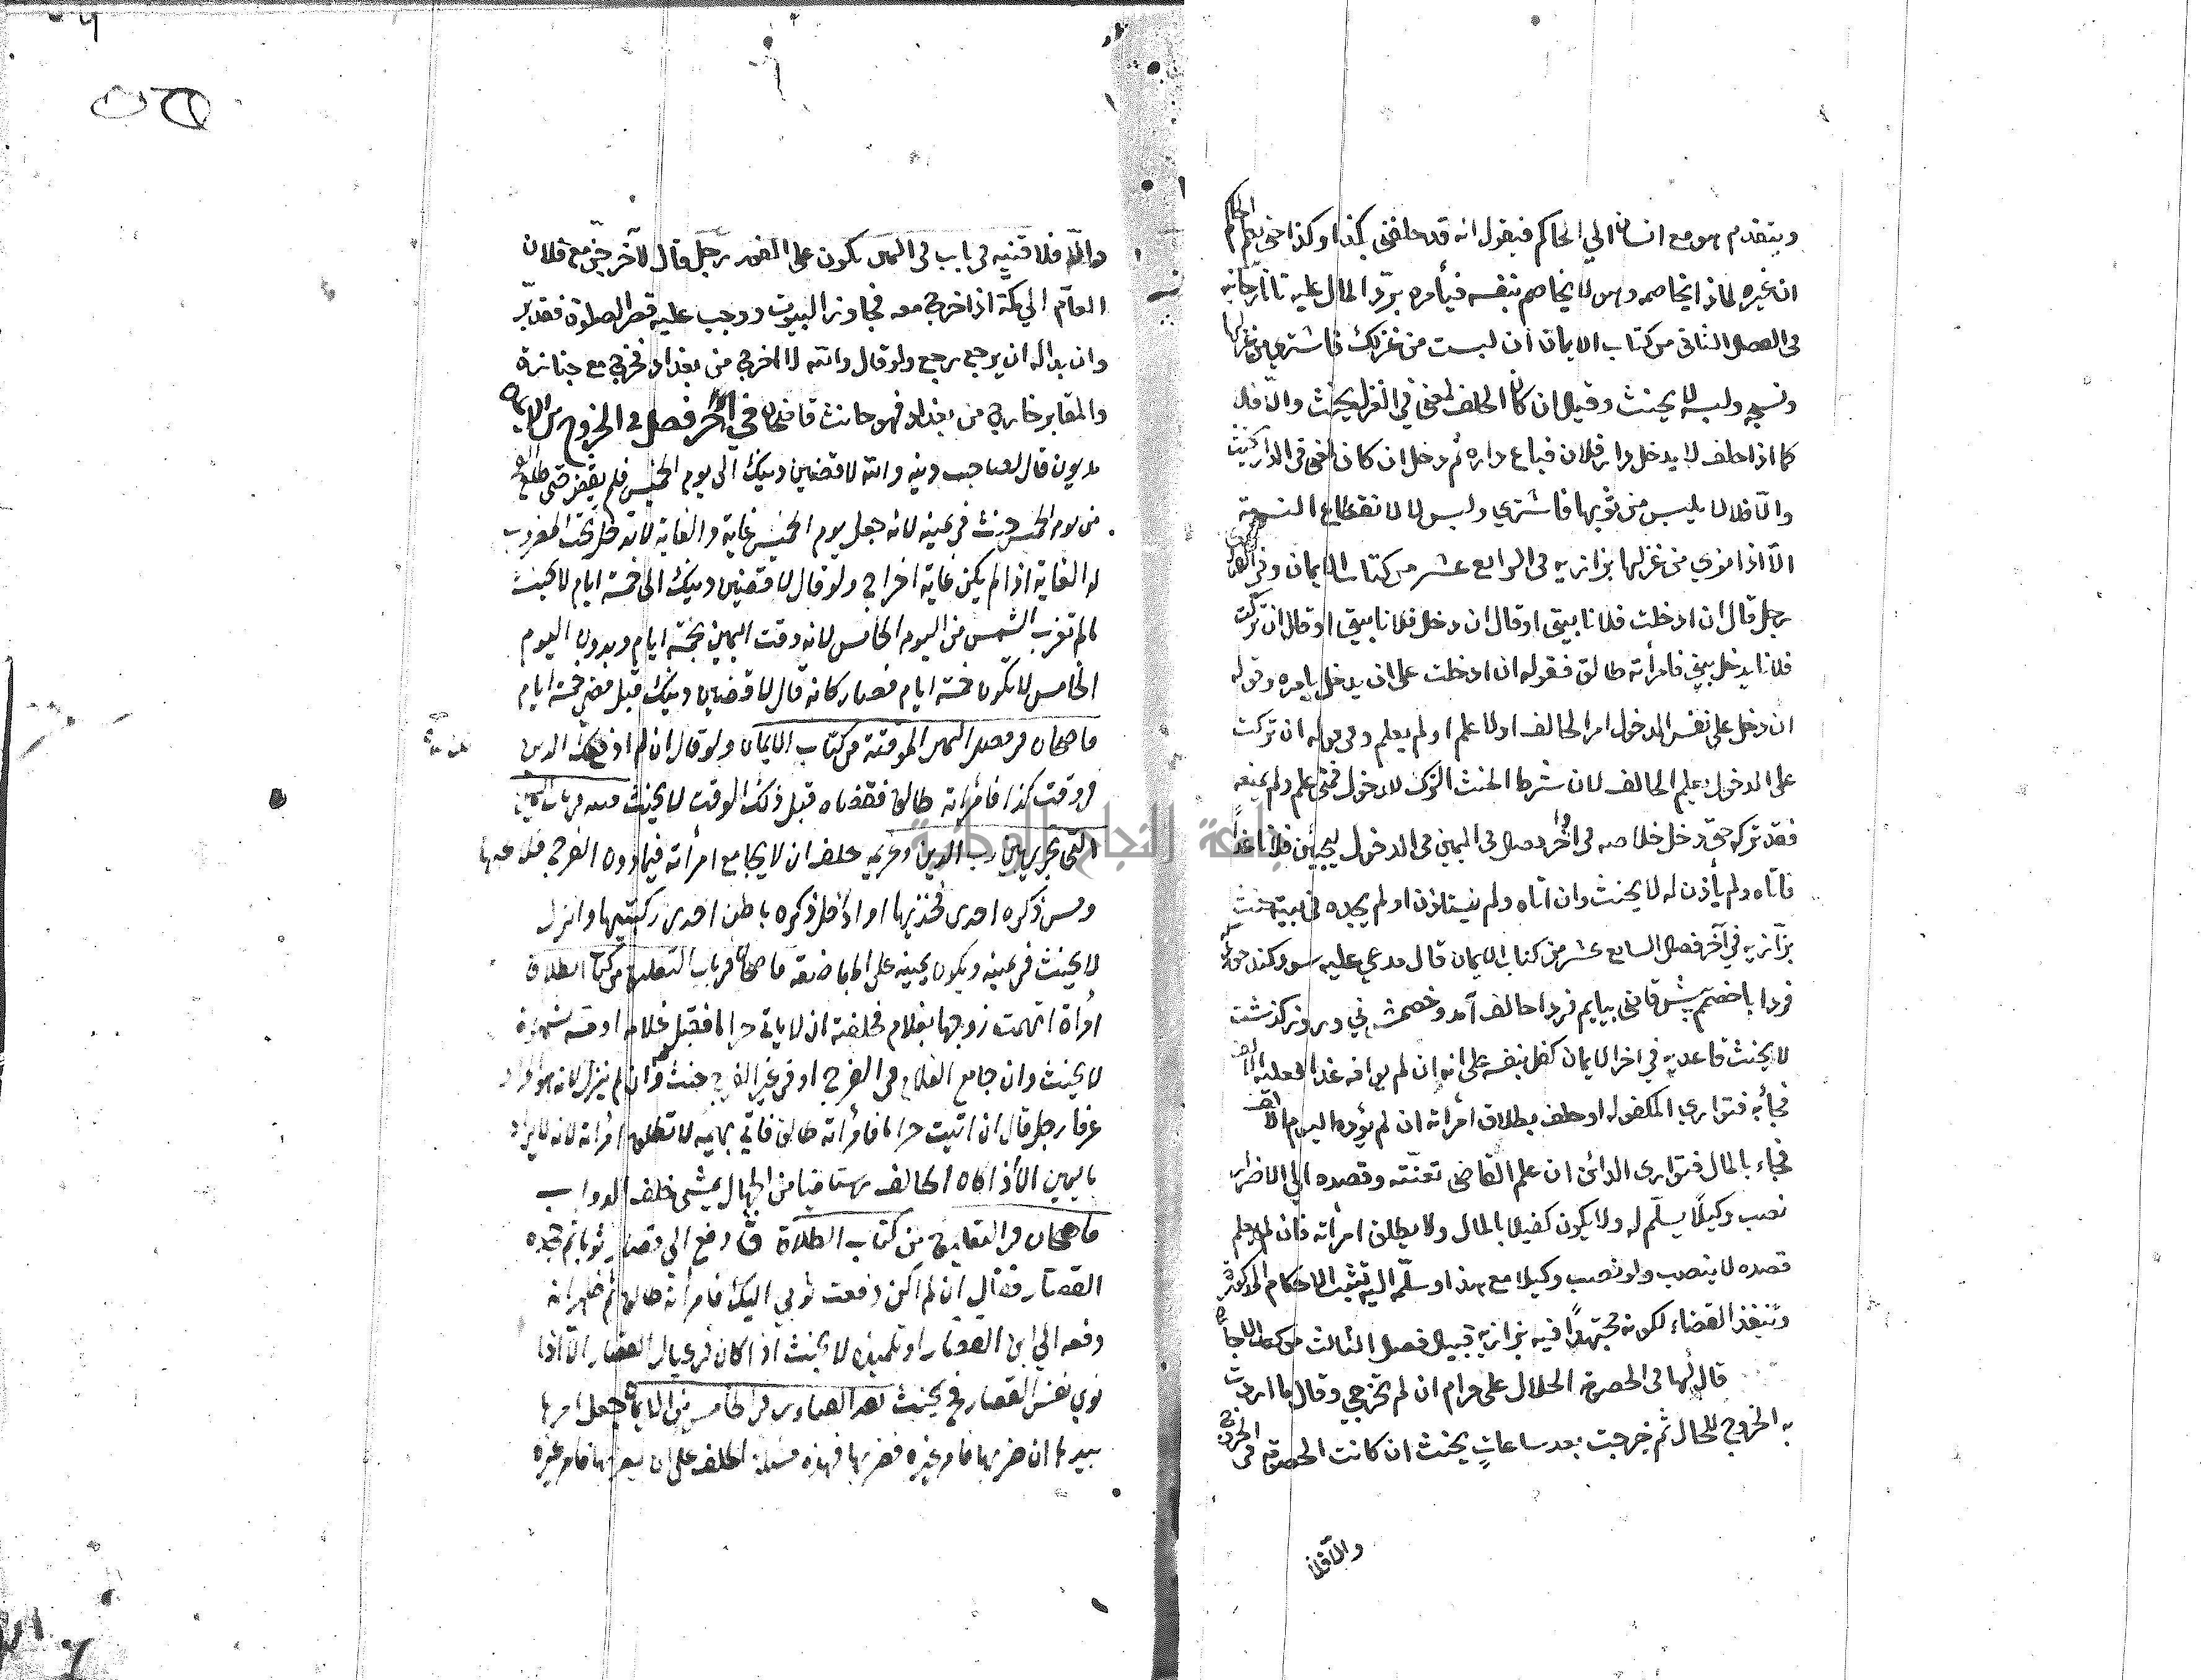 ويتقدم هو مع انسان الي الحاكم فيقول انه قد حلفني بكذا وكذا حتى يعلم الحاكم
ان غيره لماذا يخاصمه وهو لا يخاصم بنفسه فيأمره بردّ المال عليه تاتارخانيه
في الفصل الثاني من كتاب الايمان ان لبست من غزلك فاشتري من غزلها
ونسجه ولبسه لا يحنث وقيل ان كان الحلف لمعنى في الغزل يحنث والّا فلا
كما اذا حلف لا يدخل دار فلان فباع داره ثم دخل ان كان لمعنى في الدار يحنث
والّا فلا لا يلبس من ثوبها فاشتري ولبس لا لانقطاع النسبة
الّا اذا نوي من غزلها بزازيه في الرابع عشر من كتاب الايمان وفي
رجل قال ان ادخلت فلانا بيتي او قال ان دخل فلان بيتي او قال ان تركت
فلانا يدخل بيتي فامرأته طالق فقوله ان ادخلت على ان يدخل بامره وقوله
ان دخل على نفس الدخول امر الحالف اولا علم او لم يعلم وفي قوله ان تركت
على الدخول بعلم الحالف لان شرط الحنث الترك للدخول فمتى علم ولم يمنعه
فقد تركه حتى دخل خلاصه في آخر فصل في اليمين في الدخول ليجيئن فلانا غدًا
فاتاه ولم يأذن له لا يحنث وان اتاه ولم يستاذن او لم يجده في بيته حنث
بزّازيه في آخر فصل السابع عشر من كتاب الايمان قال مدعي عليه سوكند
فردا با خصم پيش قاضى بيايم فردا حالف آمد وخصمش ني وروز كذشت
لا يحنث قاعديه في اخر الايمان كفل بنفسه على انه ان لم يوافه غدا فعليه الالف
فجأ به فتواري المكفول له او حلف بطلاق امرأته ان لم يؤده اليوم الالف
فجاء بالمال فتوارى الدائن ان علم القاضي تعنّته وقصده الي الاضرار
نصب وكيلًا يسلّم له ولا يكون كفيلا بالمال ولا يطلق امرأته فان لم يعلم
قصده لا ينصب ولو نصب وكيلا مع هذا وسلّم اليه تثبت الاحكام المذكورة
وتنفذ القضاء لكونه مجتهدًا فيه بزازيه قبيل فصل الثالث من كتاب
قال لها في الخصومة الحلال على حرام ان لم تخرجي وقال ما اردت
به الخروج للحال ثم خرجت بعد ساعات يحنث ان كانت الخصومة في الخروج
والّا فلا
والّا فلا قنيه في باب في اليمين يكون على الفور رجل قال لآخر مع فلان
العام الي مكة اذا خرج معه فجاوز البيوت ووجب عليه قصر الصلوة فقد برّ
وان بدا له ان يرجع رجع ولو قال والله لا اخرج من بغداد فخرج مع جنازة
والمقابر خارج من بغداد فهو حانث قاضخان في آخر فصل في الخروج من الايمان
مديون قال لصاحب دينه والله لا قضين دينك الى يوم الخميس فلم يقض حتى طلع
من يوم الخميس حنث في يمينه لانه جعل يوم الخميس غاية والغاية لا تدخل تحت المضروب
له الغاية اذا لم يكن غاية اخراج ولو قال لاقضين دينك الى خمسة ايام لا يحنث
مالم تغرب الشمس من اليوم الخامس لانه وقت اليمين بخمسة ايام وبدون اليوم
الخامس لا تكون خمسة ايام فصار كانه قال لاقضين دينك قبل مضى خمسة ايام
قاضخان في فصل اليمين الموقتة من كتاب الايمان ولو قال ان لم اد الدين
في وقت كذا فامرأته طالق فقضاه قبل ذلك الوقت لا يحنث قنيه في باب اليمين
التي تجري بين رب الدين وغريمه حلف ان لا يجامع امرأته فيما دون الفرج
ومس ذكره احدى فخذيها او ادخل ذكره باطن احدى ركبتيها وانزل
لا يحنث في يمينه ويكون يمينه على المباضعة قاضخان في باب التعليق من كتاب الطلاق
امرأة اتهمت زوجها بغلام فحلفته ان لا ياتي حراما فقبل غلاما او مسه بشهوة
لا يحنث وان جامع الغلام في الفرج او في غير الفرج حنث وان لم ينزل لانه هو المراد
عرفا رجل قال ان اتيت حراما فامرأته طالق فاتي بهيمة لا تطلق امرأته لانه لا يراد
باليمين الا اذا كان الحالف من الجهال يمشى خلف الدواب
قاضخان في التعليق من كتاب الطلاق دفع الى قصار ثوبا ثم جحده
القصار فقال ان لم اكن دفعت ثوبي اليك فامرأته طالق ثم ظهر انه
دفعه الي ابن القصار او تلميذه لا يحنث اذا كان في عيال القصار الّا اذا
نوي نفس القصار فح يحنث نقد الفتاوى في الخامس من الايمان جعل امرها
بيدها ان ضربها فامر غيره فضربها فهذه مسئلة الحلف على ان لا يضربها فامر غيره